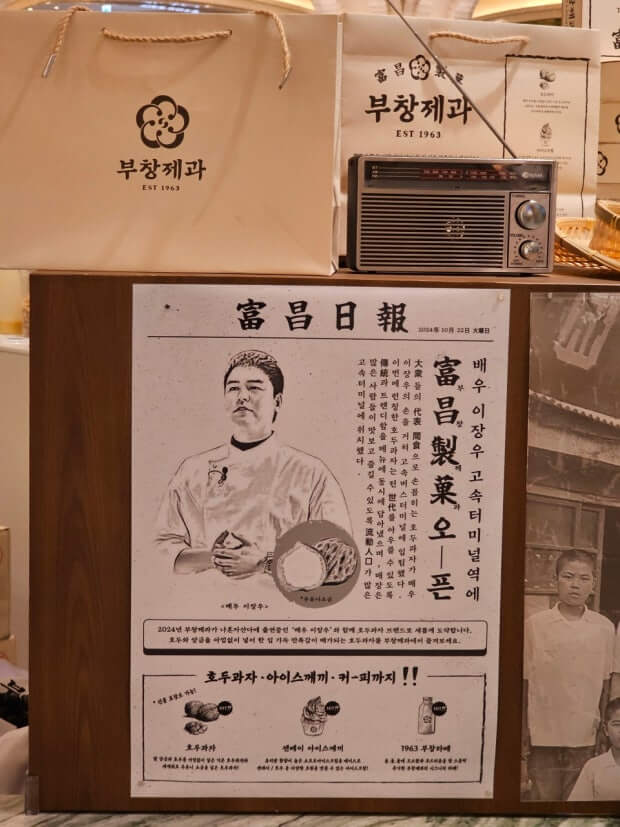 부창제과
EST 1963
富昌製菓
부창제과
EST 1963
富昌日報
2024年 10月 22日 火曜日
배우 이장우 고속터미널역에
富昌製菓 오―픈
부창제과
大衆들의 代表 間食으로 손꼽히는 호두과자가 배우
이장우의 손을 거쳐 고속버스터미널에 입점했다.
이번에 런칭한 호두과자는 전 世代를 아우를 수 있도록
傳統과 트렌디함을 메뉴에 동시에 담아냈으며, 매장은
많은 사람들이 맛보고 즐길 수 있도록 流動人口가 많은
고속터미널에 위치했다.
<배우 이장우>
2024년 부창제과가 나혼자산다에 출연중인 '배우 이장우'와 함께 호두과자 브랜드로 새롭게 도약합니다.
호두와 앙금을 아낌없이 넣어 한 입 가득 만족감이 배가되는 호두과자를 부창제과에서 즐겨보세요.
호두과자·아이스께끼·커-피까지 !!
호두과자
센베이 아이스께끼
1963 부창라떼